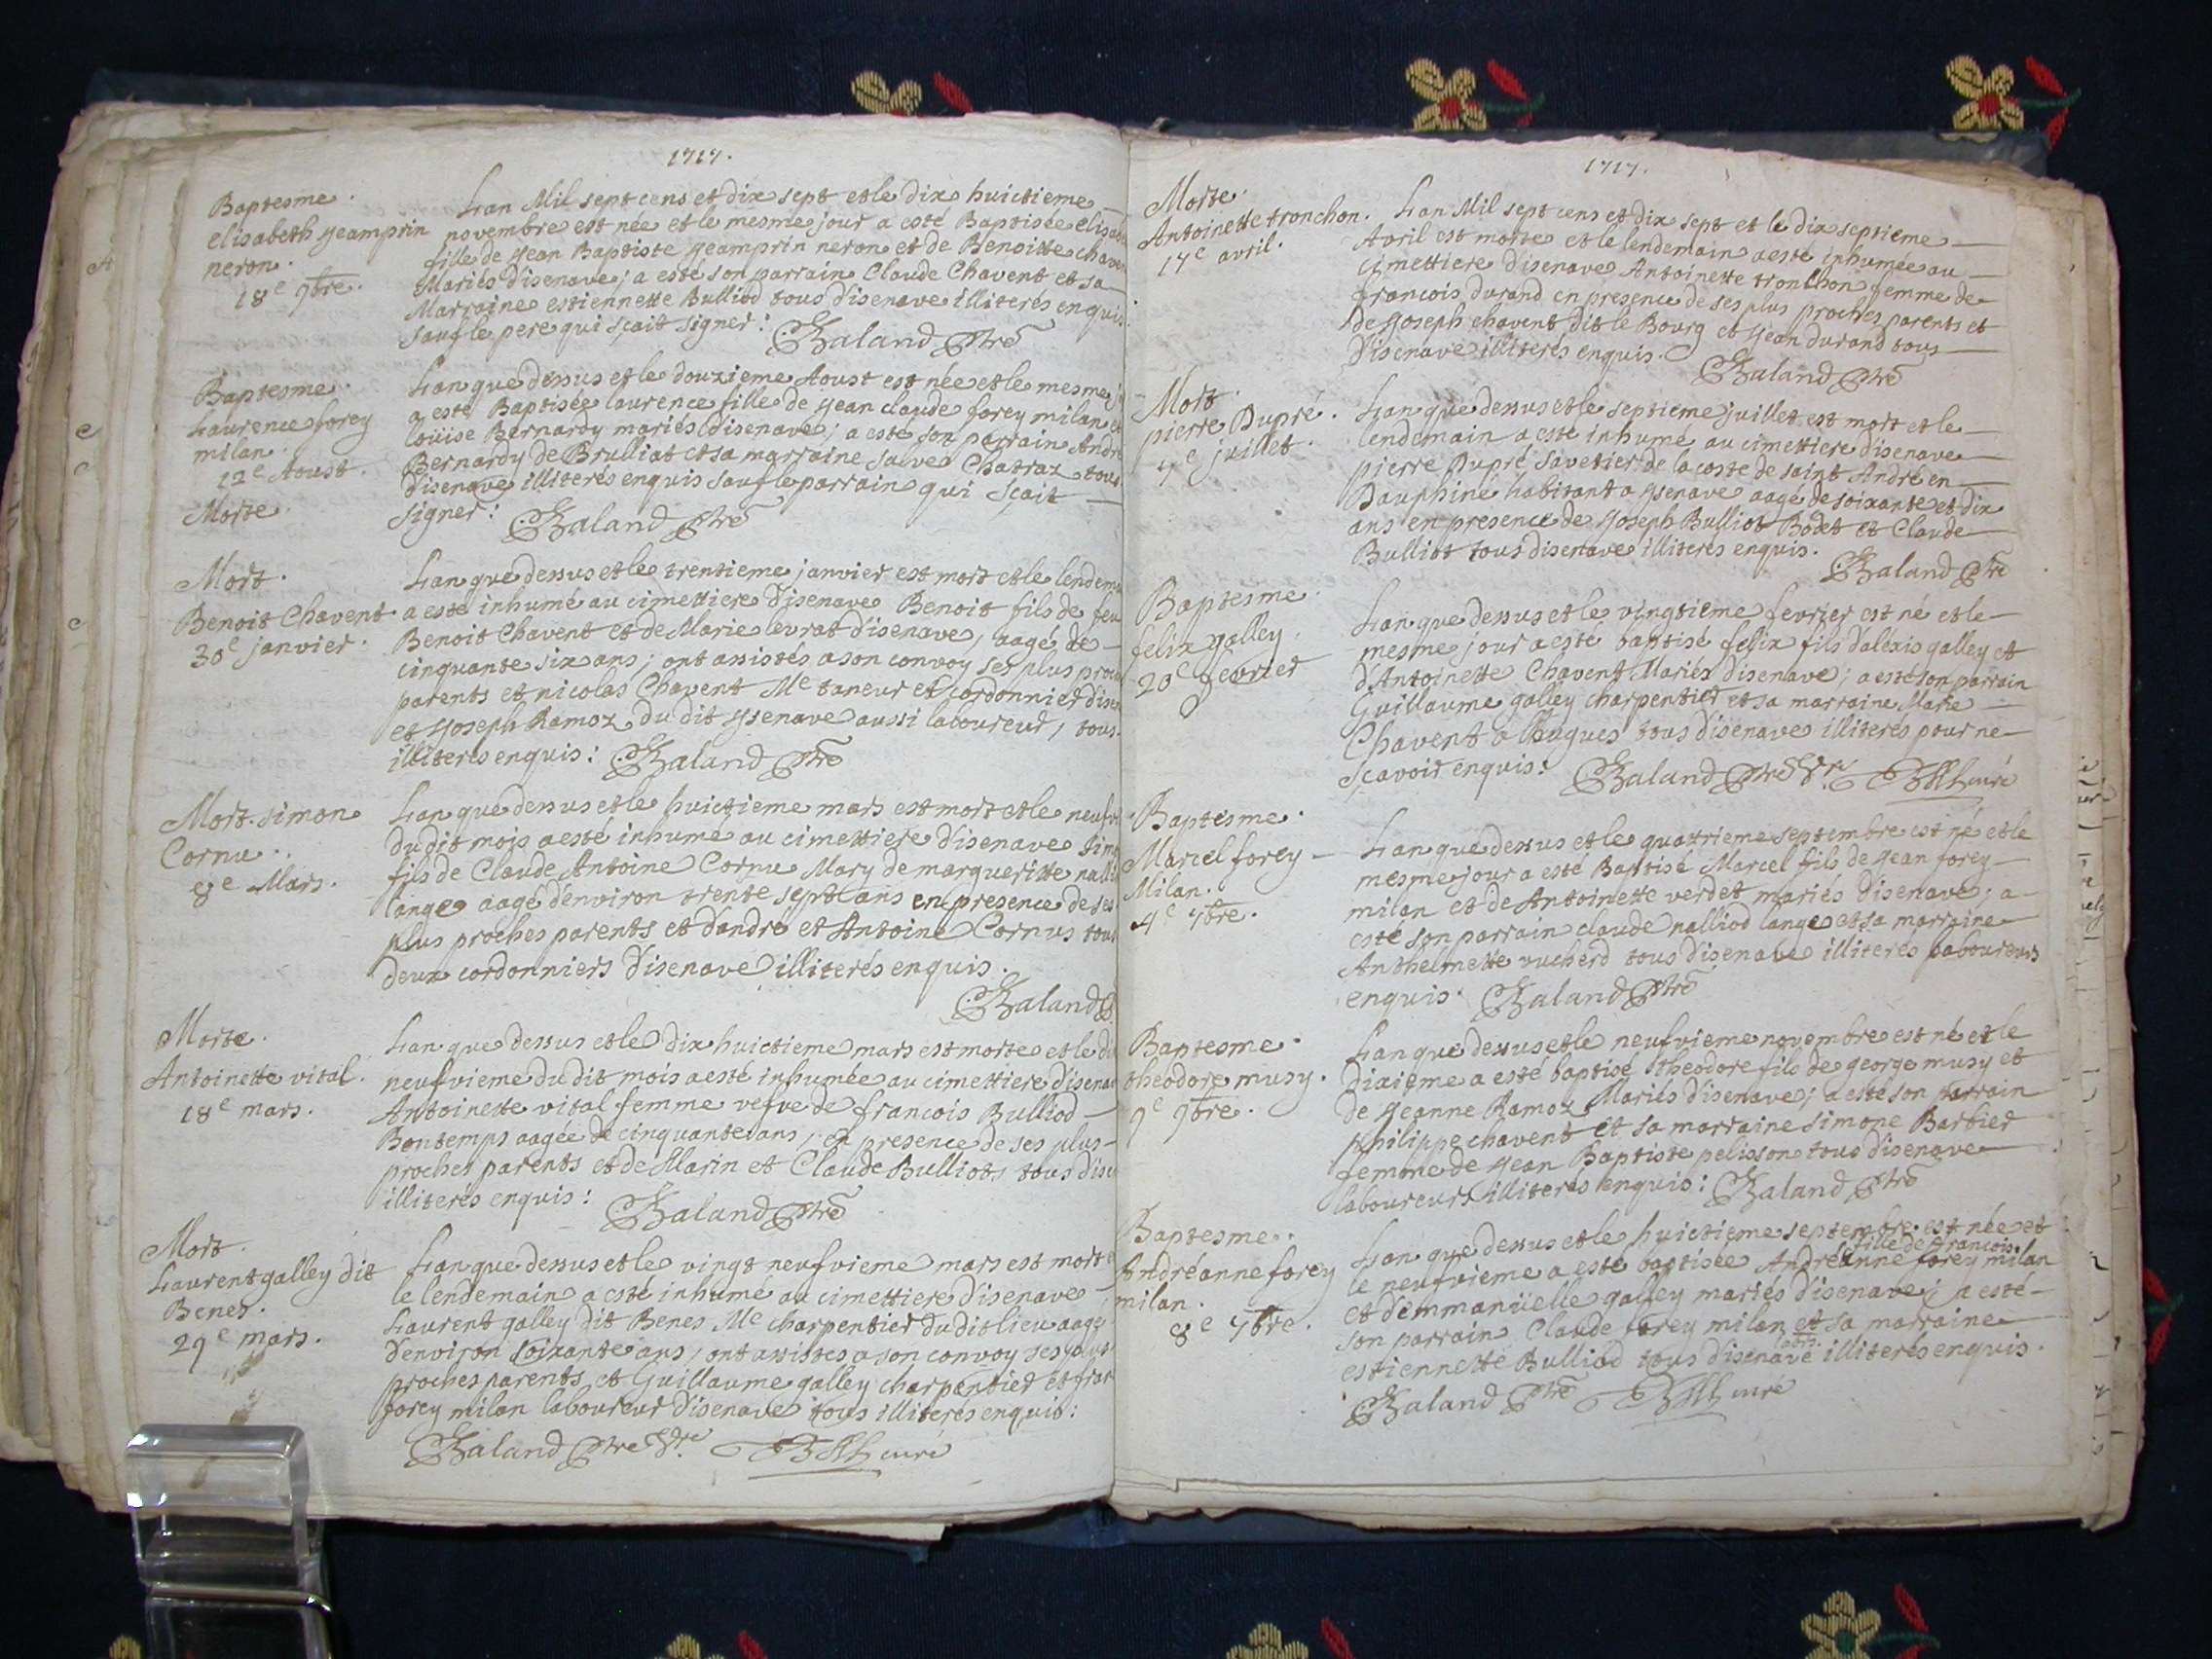 1717.
Baptesme.
elisabeth jeamprin
neron.
18e 9bre.
Lan Mil sept cens et dix sept et le dix huictieme
novembre est née et le mesme jour a esté Baptisée elisab
fille de jean Baptiste jeamprin neron et de Benoitte chaven
Mariés disenave; a esté son parrain Claude Chavent et sa
Marraine estiennette Bulliod tous disenave illiterés enquis
sauf le pere qui sçait signer: Baland Ptre
Baptesme.
Laurence forey
milan.
12e Aoust.
Morte.
Lan que dessus et le douzieme Aoust est née et le mesme j
a esté Baptisée laurence fille de jean claude forey milan et
Loüise Bernardy mariés disenave; a esté son parrain André
Bernardy de Brulliat et sa marraine salve Chatraz tous
disenave illiterés enquis sauf le parrain qui sçait
signer: Baland Ptre
Mort.
Benoit Chavent
30e janvier.
Lan que dessus et le trentieme janvier est mort et le lendem
a esté inhumé au cimettiere disenave Benoit fils de feu
Benoit Chavent et de Marie levrat disenave, aagé de
cinquante six ans; ont assistés a son convoy ses plus proch
parents et nicolas Chavent Me taneur et cordonnier disen
et joseph Ramoz du dit ysenave aussi laboureur, tous
illiterés enquis: Baland Ptre
Mort. simon
Cornu.
8e Mars.
Lan que dessus et le huictieme mars est mort et le neufv
du dit mois a esté inhumé au cimettiere disenave Simo
fils de Claude Antoine Cornu Mary de marguerite nalli
lange aagé d'environ trente sept ans en presence de ses
plus proches parents et d'andre et Antoine Cornus tous
deux cordonniers disenave illiterés enquis.
Baland P
Morte.
Antoinette vital.
18e mars.
Lan que dessus et le dix huictieme mars est morte et le di
neufvieme du dit mois a esté inhumée au cimettiere disenav
Antoinette vital femme vefve de francois Bulliod
Bontemps aagée de cinquante ans, en presence de ses plus
proches parents et de Marin et Claude Bulliots tous dise
illiterés enquis: Baland Ptre
Mort.
Laurent galley dit
Benes.
29e mars.
Lan que dessus et le vingt neufvieme mars est mort e
le lendemain a esté inhumé au cimettiere disenave
Laurent galley dit Benes Me charpentier du dit lieu aagé
d'environ soixante ans, ont assistés a son convoy ses plus
proches parents et Guillaume galley charpentier et fran
forey milan laboureur disenave tous illiterés enquis:
Baland Ptre Vre curé
1717.
Morte.
Antoinette tronchon.
17e avril.
Lan Mil sept cens et dix sept et le dix septieme
Avril est morte et le lendemain a esté inhumée au
cimettiere disenave Antoinette tronchon femme de
francois durand en presence de ses plus proches parents et
de joseph chavent dit le Bourg et jean durand tous
disenave illiterés enquis. Baland Ptre
Mort.
pierre Dupré.
7e juillet.
Lan que dessus et le septieme juillet est mort et le
lendemain a esté inhumé au cimettiere disenave
pierre Dupré savetier de la coste de saint André en
Dauphiné habitant a ysenave aagé de soixante et dix
ans en presence de joseph Bulliot Bodet et Claude
Bulliot tous disenave illiterés enquis.
Baland Ptre
Baptesme.
felix galley.
20e fevrier
Lan que dessus et le vingtieme fevrier est né et le
mesme jour a esté baptisé felix fils d'alexis galley et
d'Antoinette Chavent Mariés disenave; a esté son parrain
Guillaume galley charpentier et sa marraine Marie
Chavent tous disenave illiterés pour ne
sçavoir enquis: Baland Ptre Vre curé
Baptesme.
Marcel forey
Milan.
4e 7bre.
Lan que dessus et le quatrieme septembre est né et le
mesme jour a esté Baptisé Marcel fils de jean forey
milan et de Antoinette verdet mariés disenave; a
esté son parrain claude nalliod lange et sa marraine
Anthelmette vucherd tous disenave illiterés laboureurs
enquis. Baland Ptre
Baptesme.
theodore musy.
9e 9bre.
Lan que dessus et le neufvieme novembre est né et le
dixieme a esté baptisé theodore fils de george musy et
de jeanne Ramoz Mariés disenave; a esté son parrain
philippe chavent et sa marraine simone Barbier
femme de jean Baptiste pelisson tous disenave
laboureurs illiterés enquis: Baland Ptre
Baptesme.
Andréanne forey
milan.
8e 7bre.
Lan que dessus et le huictieme septembre est née et
fille de francois
le neufvieme a esté baptisée Andréanne forey milan
et d'emmanüelle galley mariés disenave; a esté
son parrain Claude forey milan et sa marraine
estiennette Bulliod tous disenave illiterés enquis.
Baland Ptre curé